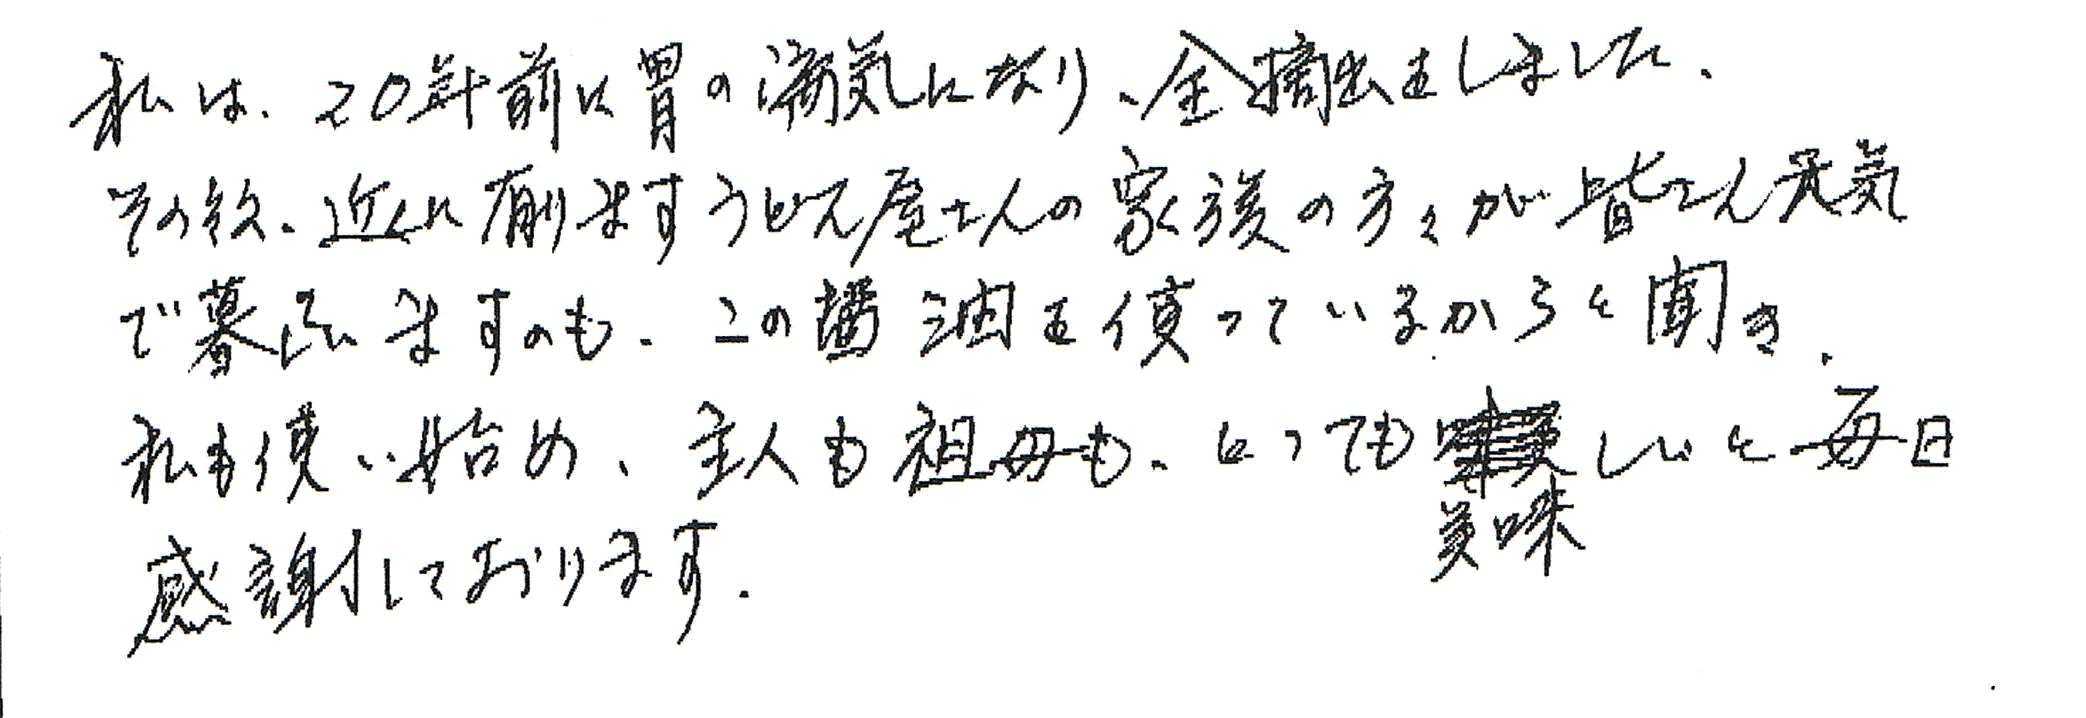 私は、20年前に胃の病気になり、全摘出をしました、
その後、近くに有りますうどん屋さんの家族の方々が皆さん元気
で暮していますのも、この醤油を使っているからと聞き、
私も使い始め、主人も祖母も、とっても美味しいと毎日
感謝しております。